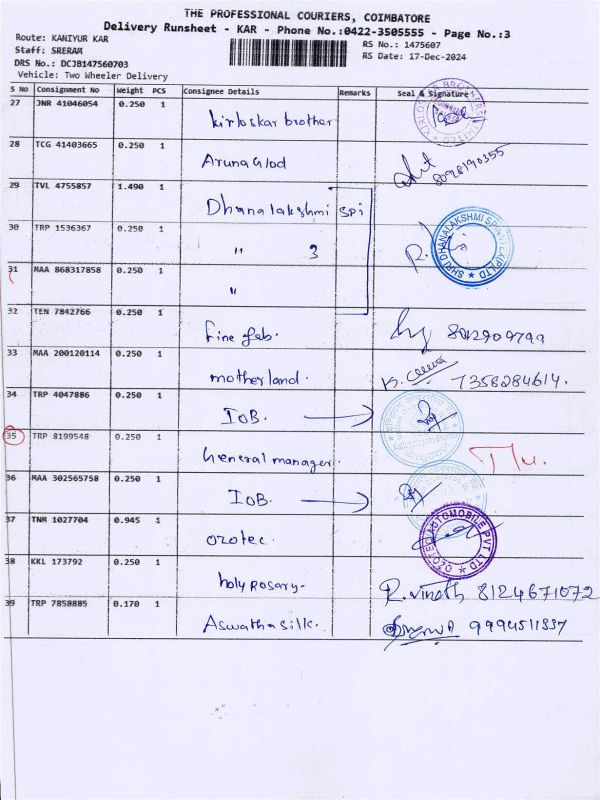 THE PROFESSIONAL COURIERS, COIMBATORE
Delivery Runsheet - KAR - Phone No.:0422-3505555 - Page No.:3
Route: KANIYUR KAR
RS No.: 1475607
Staff: SRERAM
RS Date: 17-Dec-2024
DRS No.: DCJB147560703
Vehicle: Two Wheeler Delivery
S No Consignment No Weight PCS Consignee Details Remarks Seal & Signature
27 JNR 41046054 0.250 1
kirloskar brother
28 TCG 41403665 0.250 1
Aruna Glod
8098190355
29 TVL 4755857 1.490 1
Dhanalakshmi spi
SHRI DHANALAKSHMI SPINTEX (P) LTD
30 TRP 1536367 0.250 1
" 3
31 MAA 868317858 0.250 1
"
32 TEN 7842766 0.250 1
Fine fab.
33 MAA 200120114 0.250 1
motherland.
7358284614.
34 TRP 4047886 0.250 1
IOB
35 TRP 8199548 0.250 1
General manager.
36 MAA 302565758 0.250 1
IOB
37 TNM 1027704 0.945 1
Ozotec
OZOTEC AUTOMOBILE PVT LTD
38 KKL 173792 0.250 1
holy Rosary-
R. vinoth 8124671072
39 TRP 7858885 0.170 1
Aswatha silk.
9994511837